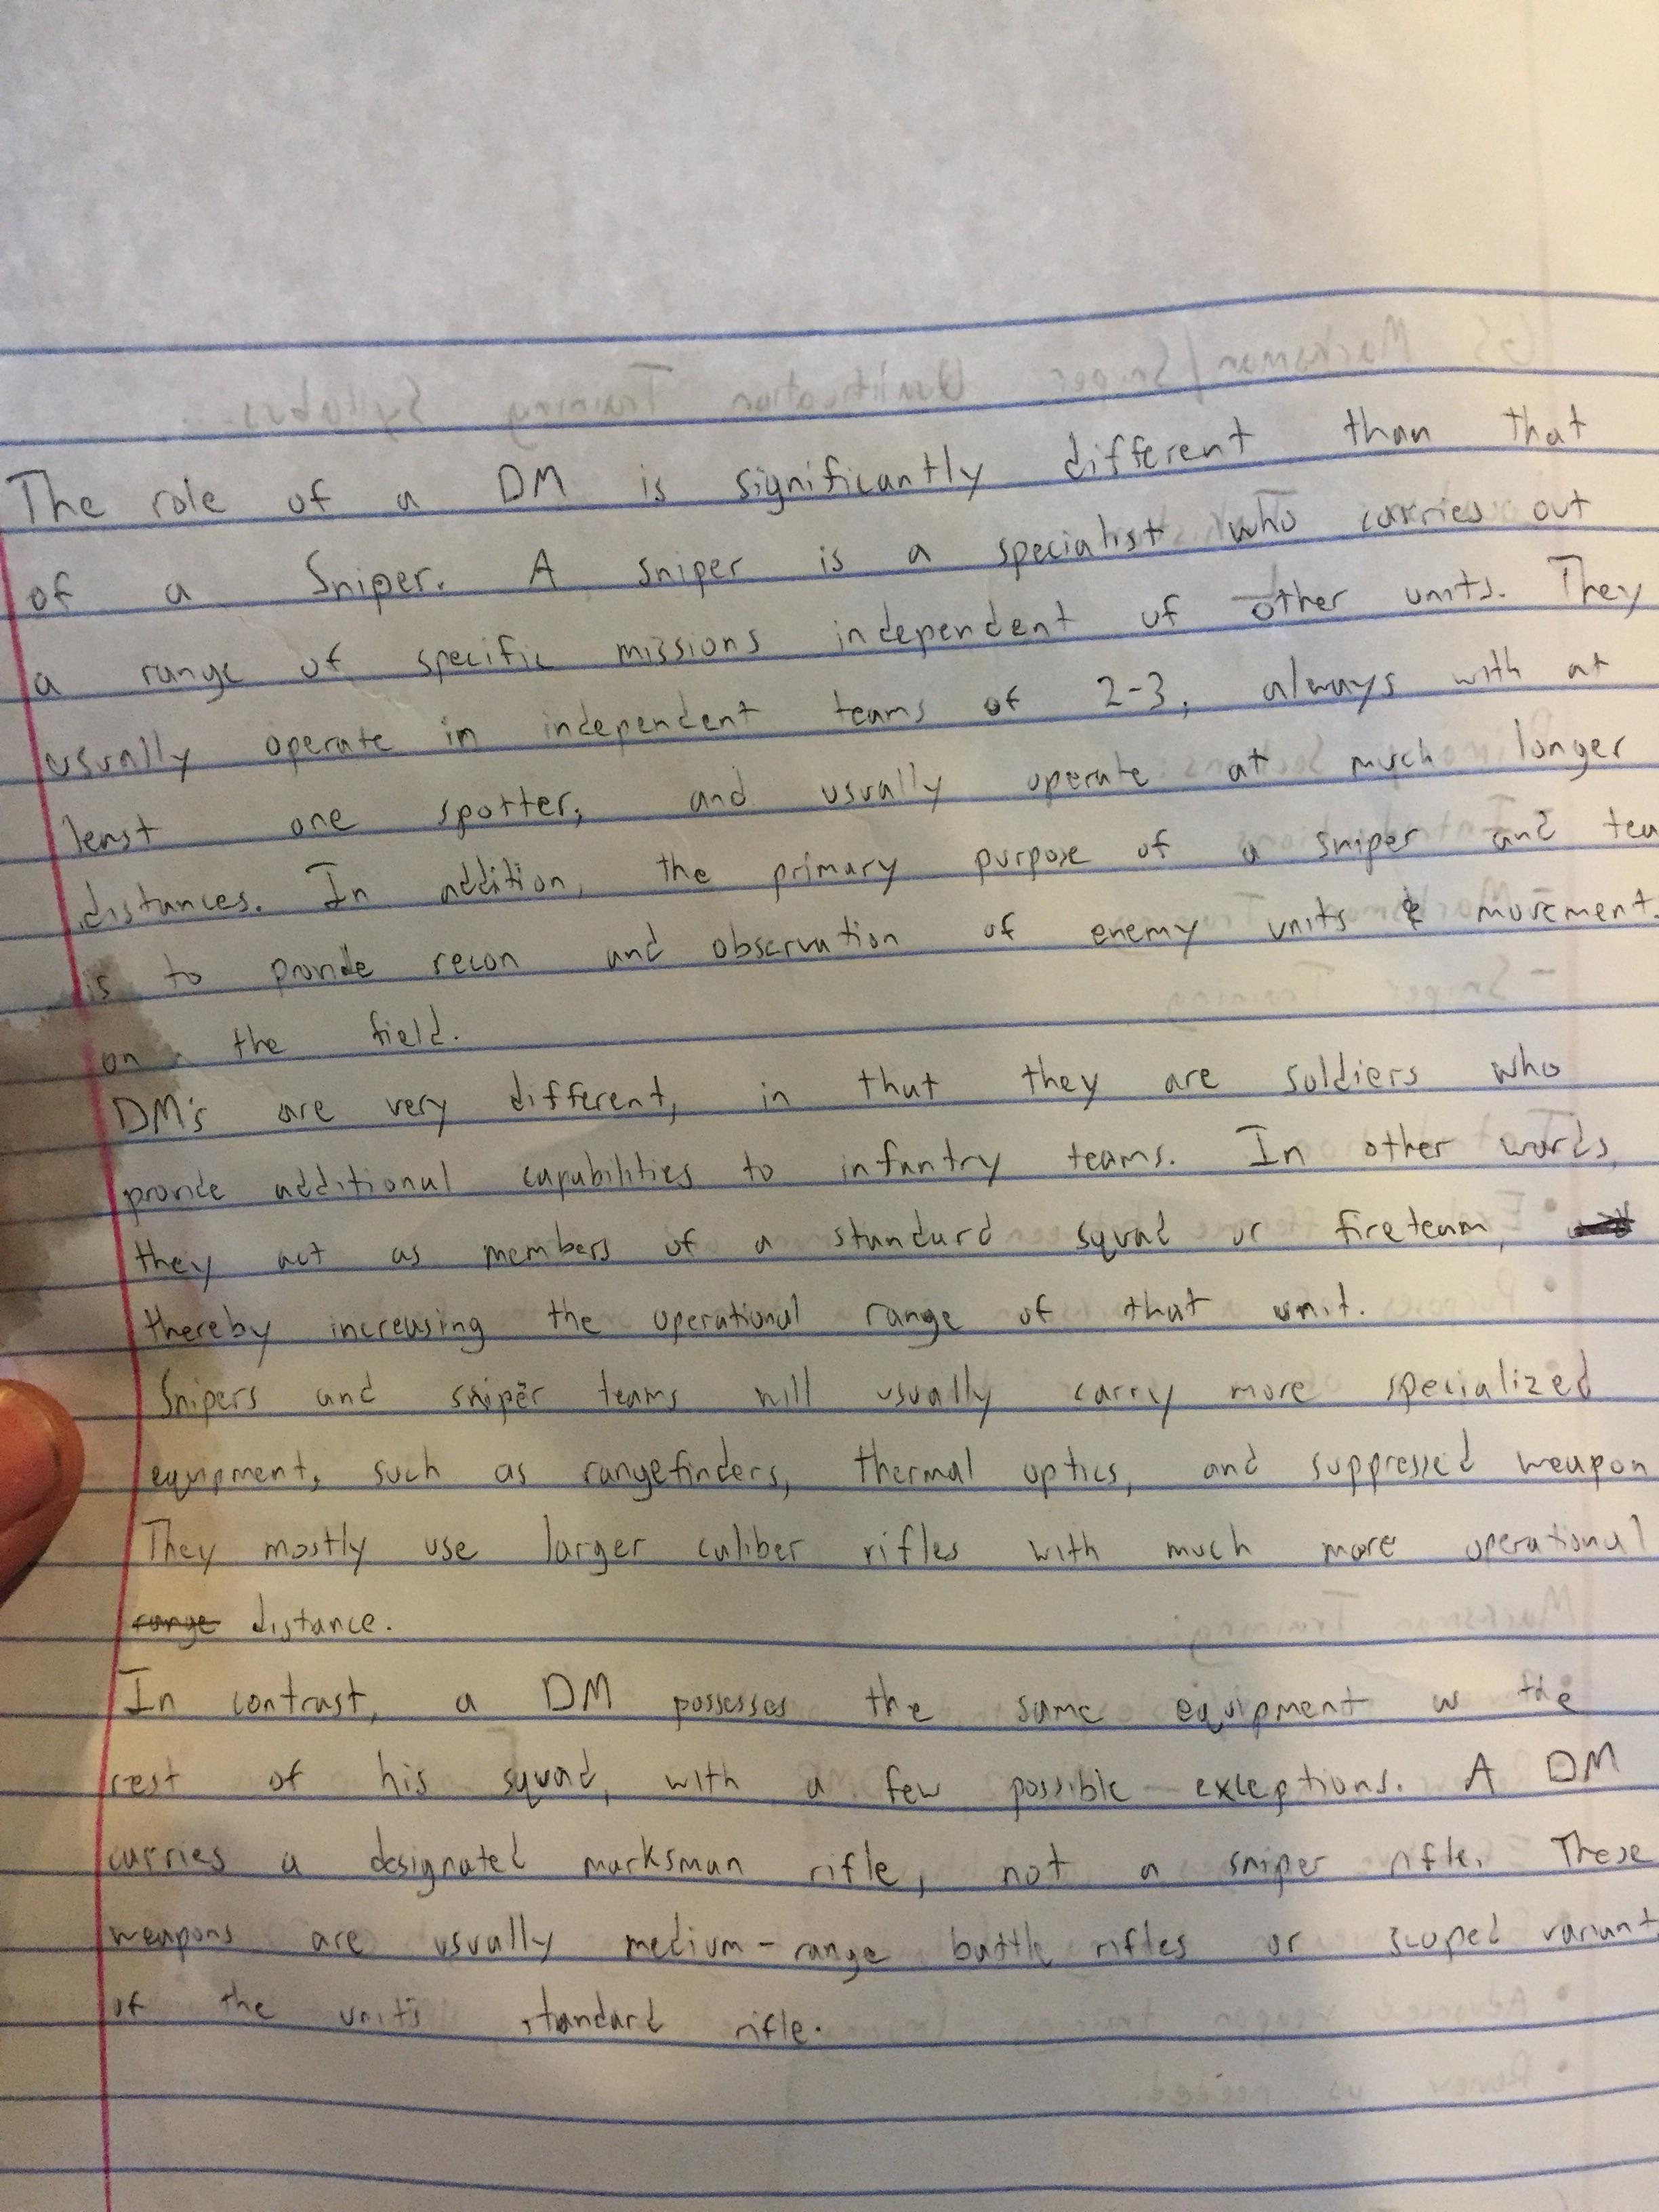 The role of a DM is significantly different than that
of a Sniper. A sniper is a specialist who carries out
a range of specific missions independent of other units. They
usually operate in independent teams of 2-3, always with at
least one spotter, and usually operate at much longer
distances. In addition, the primary purpose of a sniper and tea
is to provide recon and observation of enemy units & movement.
on the field.
DM's are very different, in that they are soldiers who
provide additional capabilities to infantry teams. In other words,
they act as members of a standard squad or fireteam,
thereby increasing the operational range of that unit.
Snipers and sniper teams will usually carry more specialized
equipment, such as rangefinders, thermal optics, and suppressed weapon
They mostly use larger caliber rifles with much more operational
range distance.
In contrast, a DM possesses the same equipment as the
rest of his squad, with a few possible exceptions. A DM
carries a designated marksman rifle, not a sniper rifle. These
weapons are usually medium-range battle rifles or scoped variant
of the unit's standard rifle.